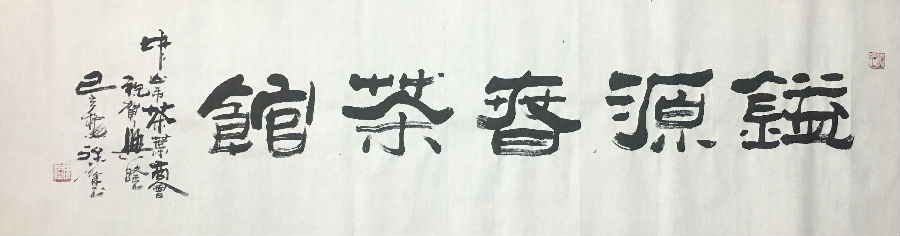 鎰源春茶館
中山市茶葉商會
祝賀興隆
己亥